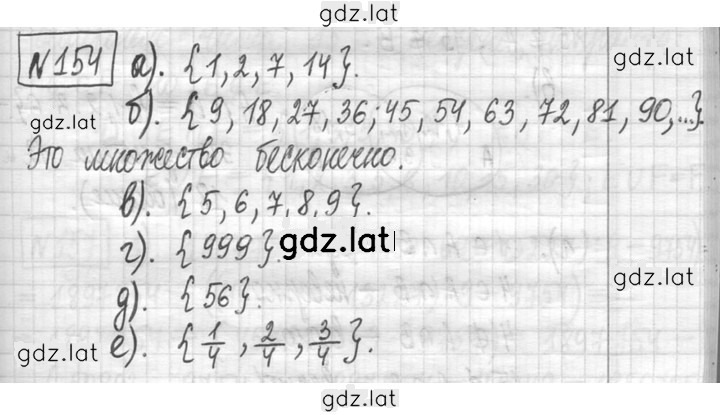 gdz.lat
№154 а). {1, 2, 7, 14}. gdz.lat
gdz.lat б). {9, 18, 27, 36; 45, 54, 63, 72, 81, 90, ...}.
Это множество бесконечно.
в). {5, 6, 7, 8, 9}.
gdz.lat
г). {999}.
gdz.lat
д). {56}.
gdz.lat е). {1/4, 2/4, 3/4}.
gdz.lat